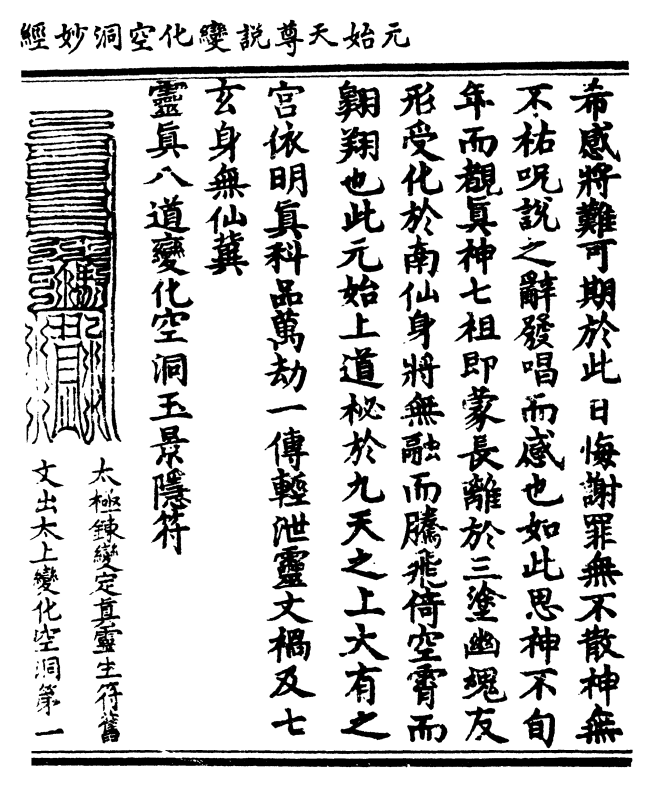 元始天尊説變化空洞妙經
希感將難可期於此日悔謝罪無不散神無
不祐呪說之辭發唱而感也如此思神不旬
年而覩真神七祖即蒙長離於三塗幽魂友
形受化於南仙身將無融而騰飛倚空霄而
翱翔也此元始上道祕於九天之上大有之
宮依明真科品萬劫一傳輕泄靈文禍及七
玄身無仙冀
靈真八道變化空洞玉景隱符
太極鍊變定真靈生符舊
文出太上變化空洞第一